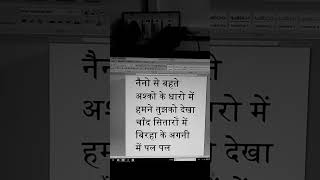 नैनो से बहते
अश्को के धारो में
हमने तुझको देखा
चाँद सितारों में
बिरहा के अगनी
में पल पल